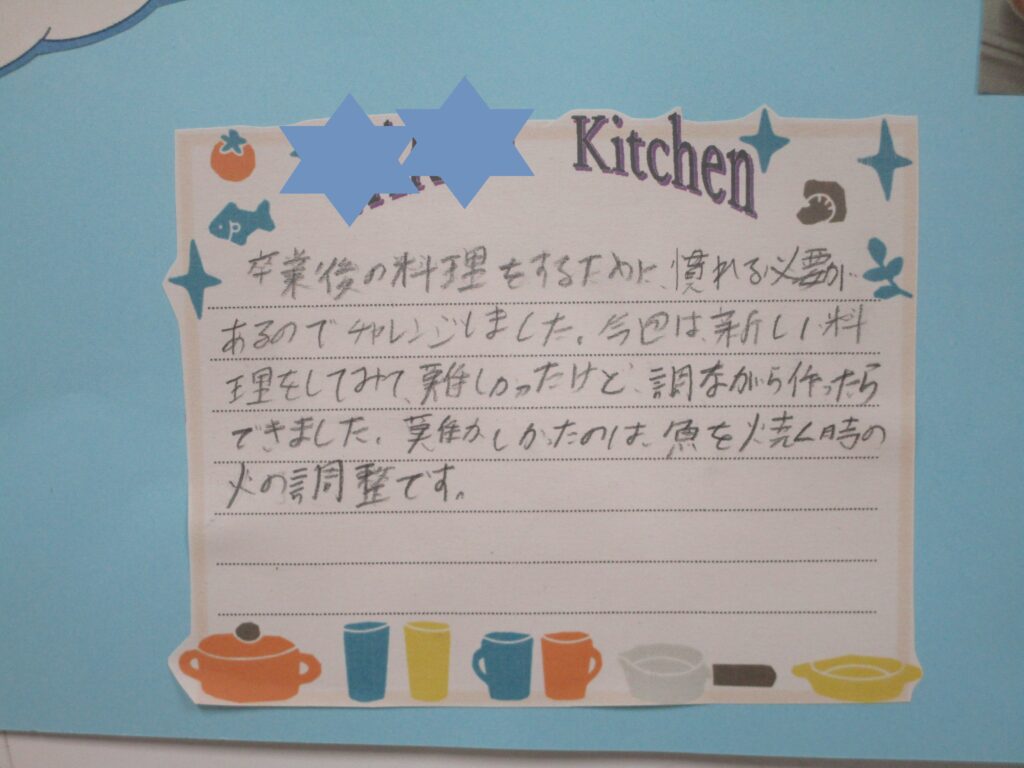 Kitchen
卒業後の料理をするために、慣れる必要が
あるのでチャレンジしました。今回は、新しい料
理をしてみて、難しかったけど、調ながら作ったら
できました。難かしかったのは、魚を焼く時の
火の調整です。